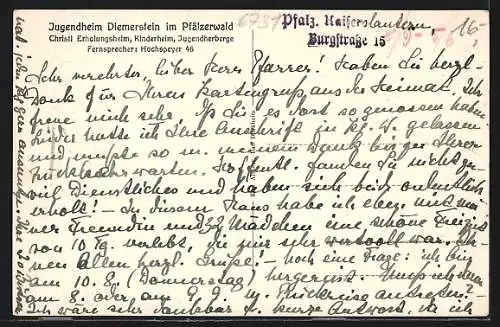 Jugendheim Diemerstein im Pfälzerwald
Christl. Erholungsheim, Kinderheim, Jugendherberge
Fernsprecher: Hochspeyer 46
6731
Pfalz. Kaiserslautern,
Burgstraße 15
16,-
Sehr verehrter, lieber Herr Pfarrer! Haben Sie herzl.
Dank für Ihren Kartengruß aus der Heimat. Ich
freue mich sehr, Sie es dort so genossen haben.
Leider hatte ich Ihre Anschrift in Kg. W. gelassen
und mußte so m. meinem Dank bis zu Ihrer
Rückkehr warten. Hoffentl. fanden Sie nicht zu-
viel Dienstliches und haben sich beide ordentlich
erholt! – In diesem Haus habe ich eben mit mei-
ner Freundin und 22 Mädchen eine schöne Freizeit
von 10 Tg. verlebt, die mir sehr wertvoll war. Ih-
nen Allen herzl. Grüße! – noch eine Frage: ich bin
am 10.8. (Donnerstag) hergereist. Muß ich dann
am 8. oder am 9.9. m. Rückreise antreten? –
Ich wäre sehr dankbar f. kurze Antwort, da ich